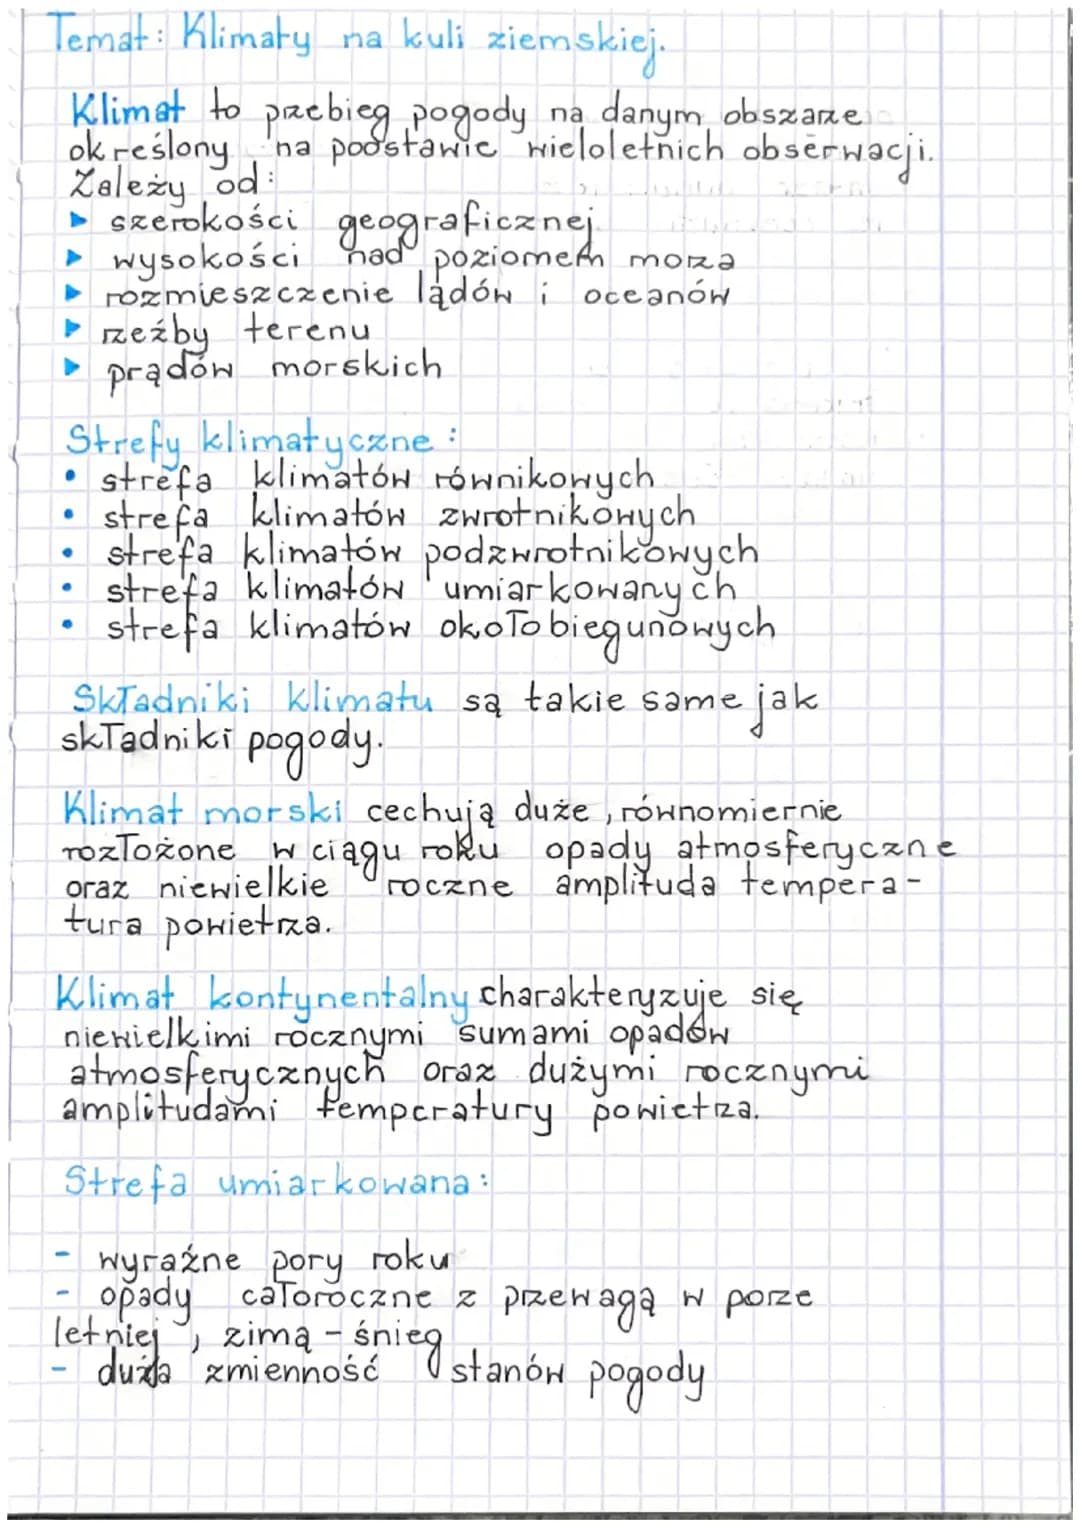 Temat: Klimaty na kuli ziemskiej.
Klimat to przebieg pogody na danym obszarze
określony na podstawie wieloletnich obserwacji.
Zależy od:
▸ szerokości geograficznej
▸ wysokości nad poziomem morza
▸ rozmieszczenie lądów i oceanów
▸ rzeźby terenu
▸ prądów morskich
Strefy klimatyczne:
• strefa klimatów równikowych
• strefa klimatów zwrotnikowych
• strefa klimatów podzwrotnikowych
• strefa klimatów umiarkowanych
• strefa klimatów okołobiegunowych
Składniki klimatu są takie same jak
składniki pogody.
Klimat morski cechują duże, równomiernie
rozłożone w ciągu roku opady atmosferyczne
oraz niewielkie roczne amplituda tempera-
tura powietrza.
Klimat kontynentalny charakteryzuje się
niewielkimi rocznymi sumami opadów
atmosferycznych oraz dużymi rocznymi
amplitudami temperatury powietrza.
Strefa umiarkowana:
- wyraźne pory roku
- opady całoroczne z przewagą w porze
letniej, zimą - śnieg
- duża zmienność stanów pogody